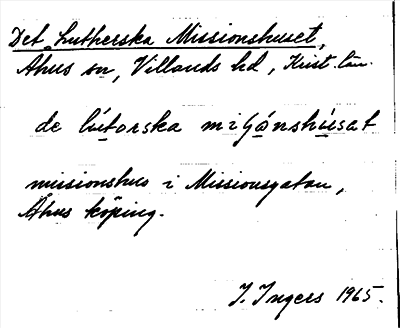 Det Lutherska Missionshuset,
Åhus sn, Villands hd, Krist. län.
de lútorska miʃónshúsat
missionshus i Missionsgatan,
Åhus köping.
I. Ingers 1965.